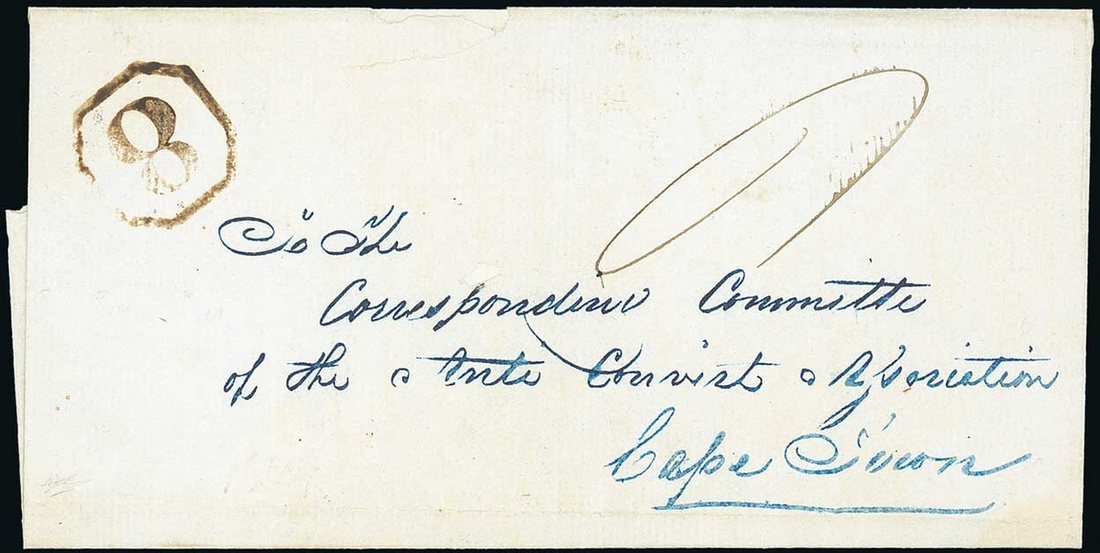 8
To The
Corresponding Committe
of the Anti Convict Association
Cape Town